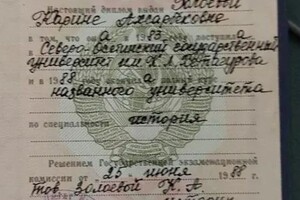 Настоящий диплом выдан Золоевой
Карине Ахсарбековне
в том, что она в 1983 году поступила
Северо-Осетинский государственный
университет им. К.Л. Хетагурова
88
названного университета
по специальности
история
Решением Государственной экзаменационной
комиссии от 25 июня 1988 г.
тов. Золоевой К. А.